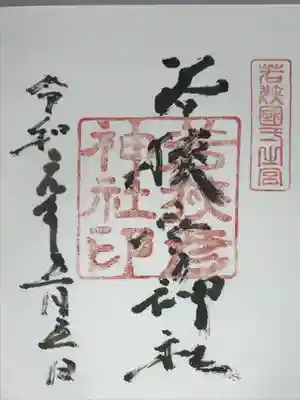 若狹國一之宮
若狭彦神社
若狭彦
神社印
令和元年五月五日